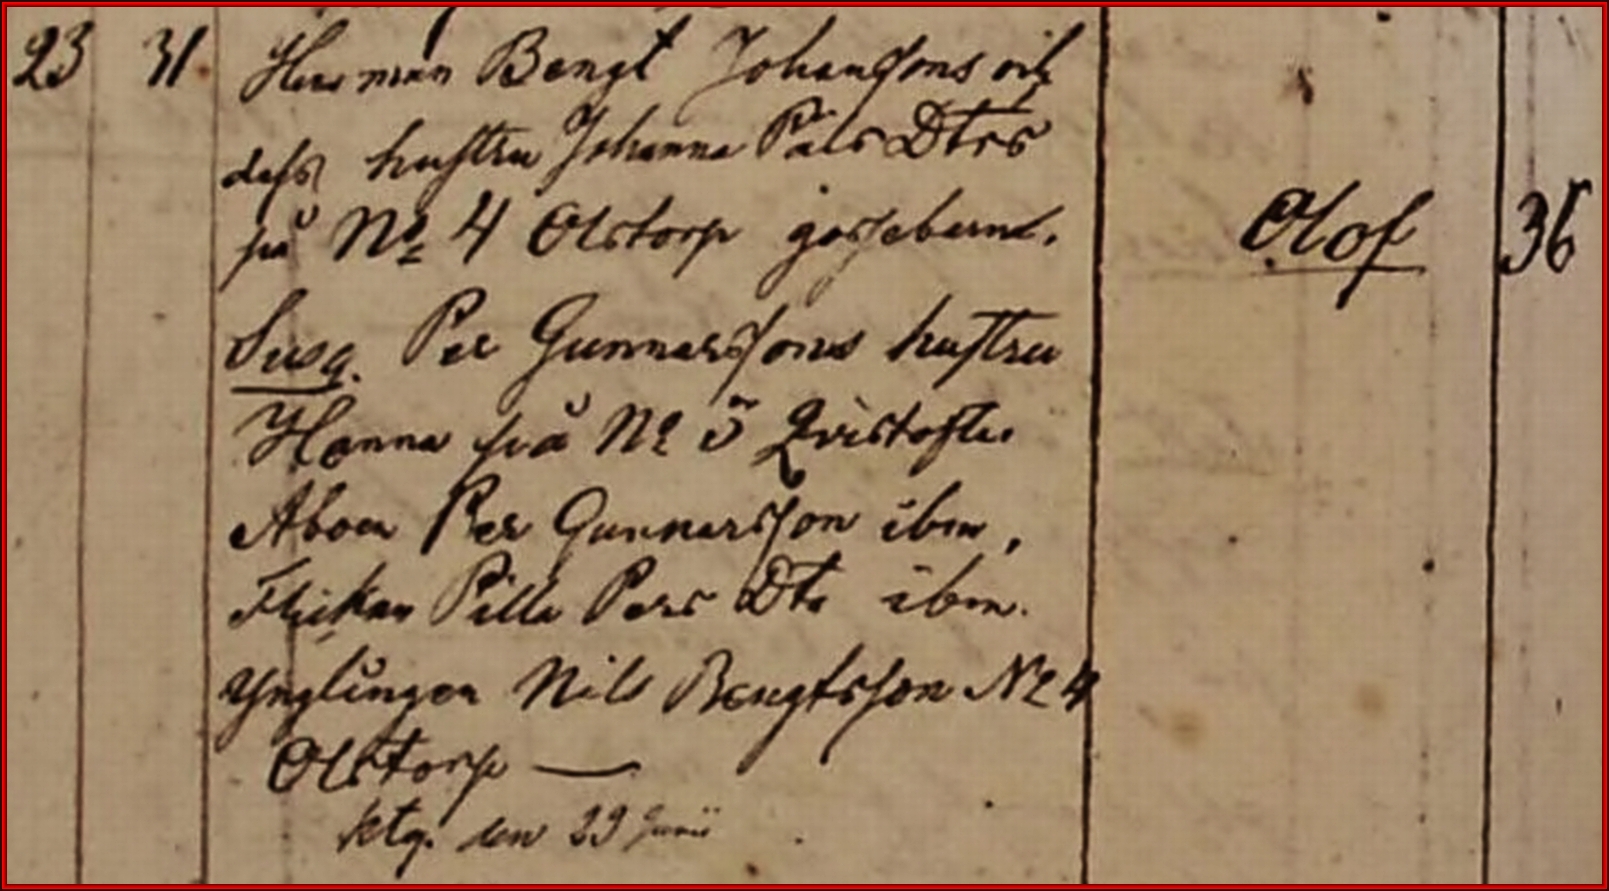 23 31 Husman Bengt Johanssons och
dess hustru Johanna Påls Dtrs
på No 4 Olstorp gossebarn.
Olof 36
Susc. Per Gunnarssons hustru
Hanna på No 5 Qvistofte.
Åboen Per Gunnarsson ibm,
Flickan Pilla Pers Dtr ibm.
Ynglingen Nils Bengtsson No 4
Olstorp —
ktg. den 29 Junii